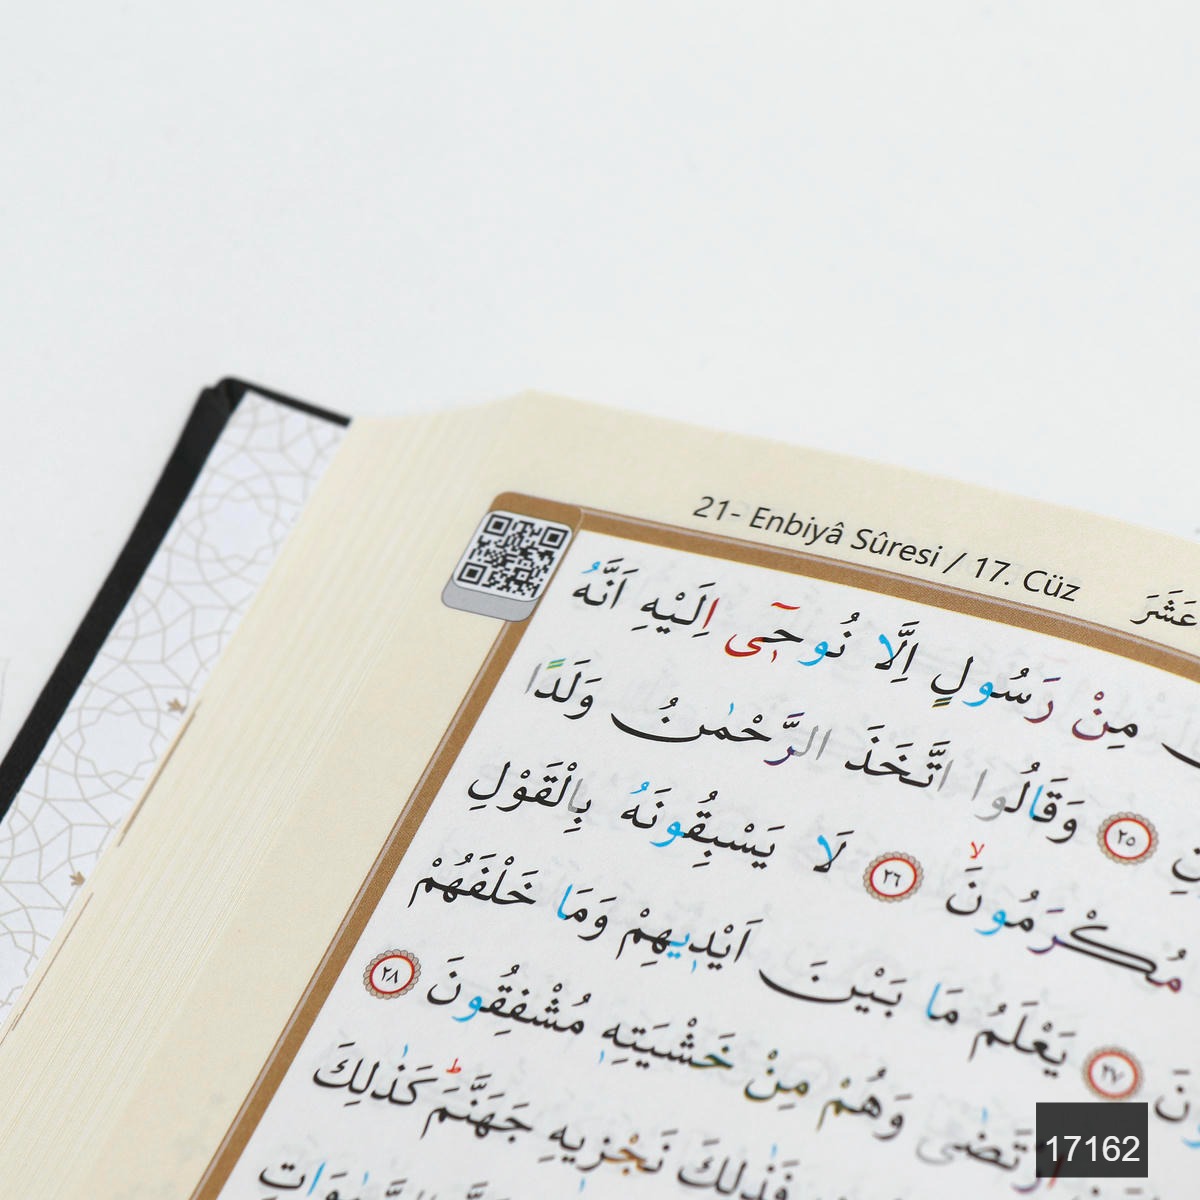 21- Enbiyâ Sûresi / 17. Cüz
عَشَرَ
مِنْ رَسُولٍ اِلَّا نُوح۪ٓي اِلَيْهِ اَنَّهُ
٢٥ وَقَالُوا اتَّخَذَ الرَّحْمٰنُ وَلَدًا
مُكْرَمُونَۙ ٢٦ لَا يَسْبِقُونَهُ بِالْقَوْلِ
٢٧ يَعْلَمُ مَا بَيْنَ اَيْد۪يهِمْ وَمَا خَلْفَهُمْ
ارْتَضٰى وَهُمْ مِنْ خَشْيَتِه۪ مُشْفِقُونَ ٢٨
فَذٰلِكَ نَجْز۪يهِ جَهَنَّمَۜ كَذٰلِكَ
17162